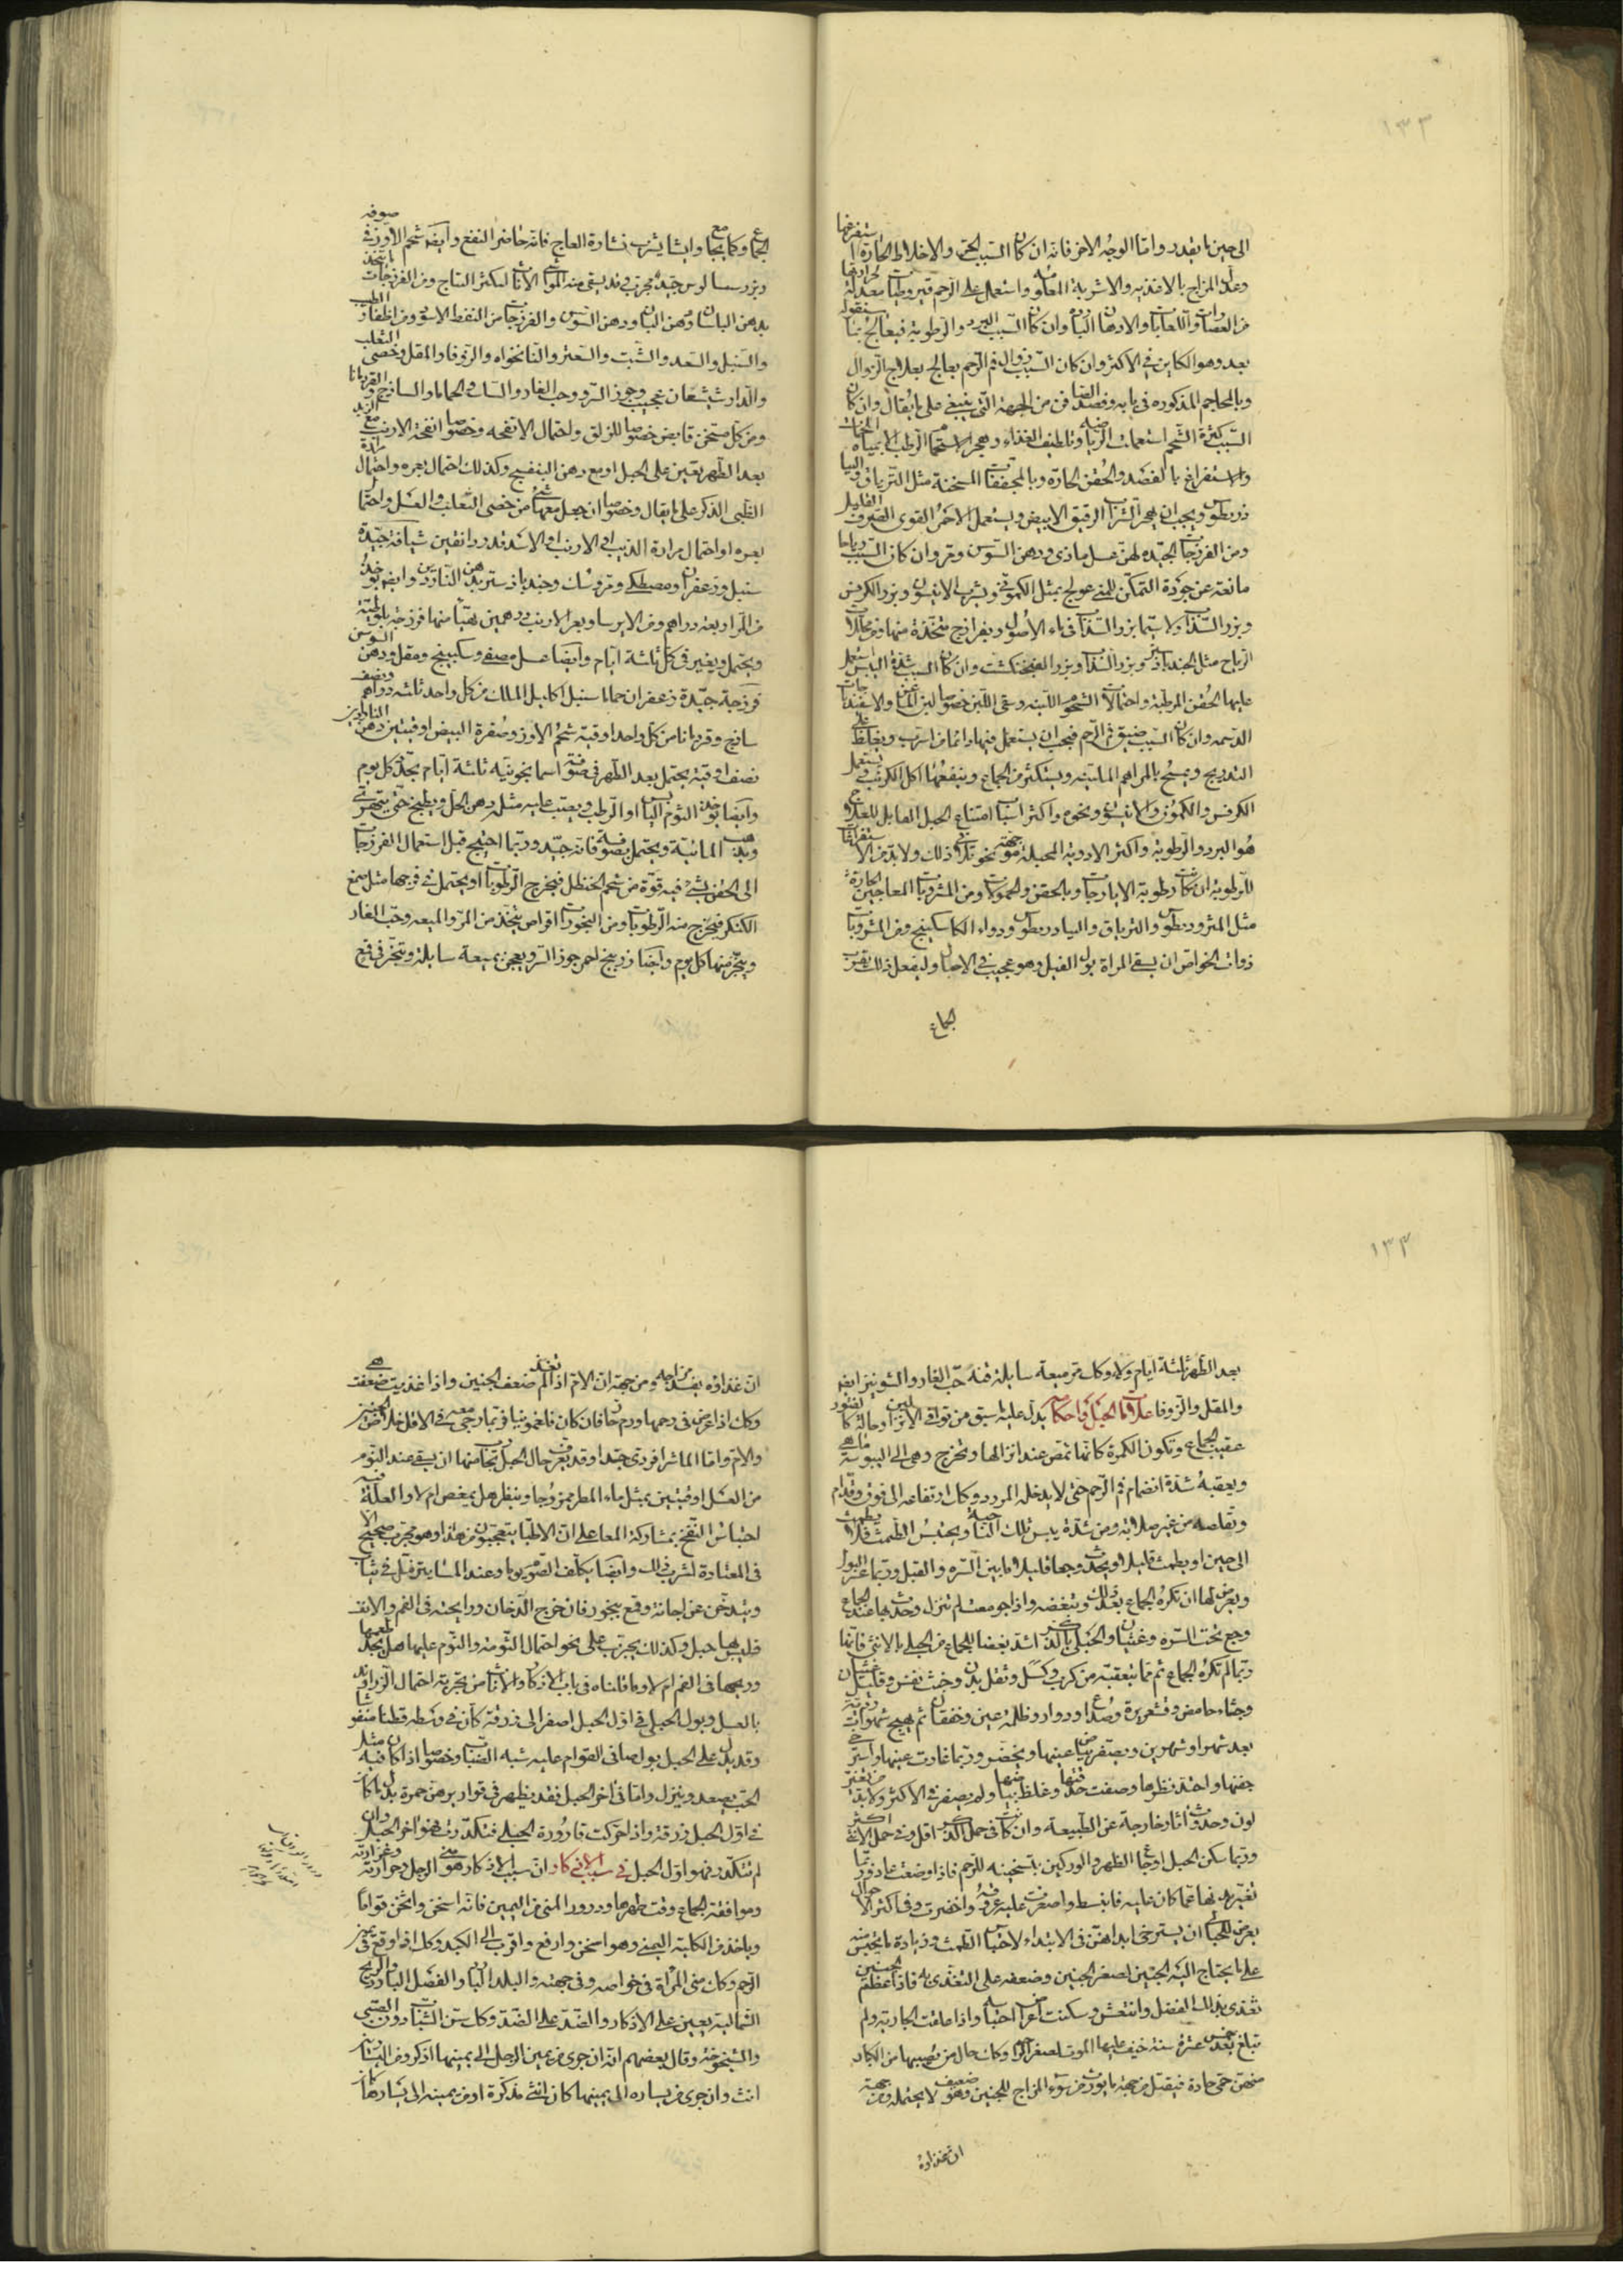 ١٣٣
الى حين ما يقدر واما الوجه الاخر فانه ان كان السبب الحر والاخلاط الحارة استفرغها
وعدل المزاج بالاغذيه والاشربة المعلومه واستعمل على الرحم قيروطيات معدلة لحرارتها
من العصارات واللعابات والادهان الباردة وان كان السبب البرد والرطوبة فيعالج بما سنقوله
بعد وهو الكاين في الاكثر وان كان السبب زوال فم الرحم يعالج بعلاج الزوال
وبالمحاجم المذكوره في بابه وفصد الصافن من الجهة التي ينبغي على ما يقال وان كان
السبب كثرة الشحم استعملت الرياضه وتلطيف الغذاء وهجر الاستحمام الرطب الا بمياه الحمات
والاستفراغ بالفصد والحقن الحارة وبالمجففات المسخنة مثل الترياق والثيا
ذريطوس ويجب ان يهجر الشراب الرقيق الابيض ويستعمل الاحمر القوى الصرف القليل
ومن الفرزجات الجيده لهن عسل ماذى ودهن السوس ومر وان كان السبب رياحا
مانعة عن جودة التمكن للمني عولج بمثل الكمونى وبشرب الانيسون وبزر الكرفس
وبزر السذاب لا سيما بزر السذاب فى ماء الاصول وبفرازج متخذة منها ومن محللات
الرياح مثل الجندبادستر وبزر السذاب وبزر الفنجنكشت وان كان السبب شدة اليبس استعمل
عليها الحقن المرطبة واحتمالات الشحوم اللينه وسقى اللبن خصوصا لبن الماعز والاسفيدباجات
الدسمه وان كان السبب ضيق فم الرحم فيجب ان يستعمل فيها دائما من اسرب ويغلظ على
التدريج ويمسح بالمراهم الملينه ويستكثر من الجماع وينفعها اكل الكرنب يستعمل
الكرفس والكمون والانيسون ونحوه واكثر اسباب امتناع الحبل القابل للعلاج
هو البرد والرطوبة واكثر الادوية المحبلة موجهة نحو تلافى ذلك ولابد من الاستفراغات
للرطوبة ان كانت رطوبة الايارجات وبالحقن والحمولات ومن المشروبات المعاجين الحارة
مثل المثروديطوس والترياق والثيادريطوس ودواء الكاسكبينج ومن المشروبات
ذوات الخواص ان يسقى المراة بول الفيل وهو عجيب في الاحبال وليفعل ذلك بقرب
الجماع
الجماع وكما يجامع وايضا يشرب نشارة العاج فانه حاضر النفع وايضا شحم الاوز في صوفه
وبزر سساليوس جيدة مجرب قد يسقى منه المواشى الاناث ليكثر النتاج ومن الفرزجات ما يتخذ
بدهن البلسان ودهن البان ودهن السوسن والفرزجات من النفط الاسود ومن اظفار الطيب
والسنبل والسعد والشبت والسعتر والنانخواه والزوفا والمقل وخصى الثعلب
والدارشيشعان عجيب وجوز السرو وحب الغار والسليخة والحماما والساذج والقردمانا
ومن كل مسخن قابض خصوصا للزلق واحتمال الانفحه وخصوصا انفحة الارنب مع الزبد
بعد الطهر تعين على الحبل او مع دهن البنفسج وكذلك احتمال بعره واحتمال مرارة
الظبى الذكر على ما يقال وخصوصا ان جعل معها شئ من خصى الثعلب والعسل واحتمال
بعره او احتمال مرارة الذيب او الارنب او الاسد بقدر دانقين شيافة جيدة
سنبل وزعفران ومصطكى ومر وسك وجندباذستر بدهن الناردين وايضا يؤخذ
من المر اربعة دراهم ومن الايرسا وبعر الارنب درهمين يهيأ منها فرزجة بلوطية
ويحتمل ويغير في كل ثلثة ايام وايضا عسل مصفى وسكبينج ومقل ودهن السوسن
فرزجة جيدة زعفران حماما سنبل اكليل الملك من كل واحد ثلثه دراهم ونصف
ساذج وقردمانا من كل واحد اوقية شحم الاوز وصفرة البيض اوقيتين دهن الناردين
نصف اوقية يحتمل بعد الطهر في صوفة اسمانجونيه ثلثة ايام يجدد كل يوم
وايضا يؤخذ الثوم اليابس او الرطب ويصب عليه مثله دهن الحل ويطبخ حتى يتهرى
ويذهب المائية ويحتمل بصوفة فانه جيد وربما احتيج قبل استعمال الفرزجات
الى الحقن بشئ فيه قوة من شحم الحنظل فيخرج الرطوبات او يحتمل في فرجها مثل صمغ
الكنكر فيخرج منه الرطوبات ومن البخورات اقراص يتخذ من المر والميعه وحب الغار
ويبخر منها كل يوم وايضا زرنيخ احمر جوز السرو يعجن بميعة سائلة ويبخر في قمع
١٣٣
بعد الطهر ثلثة ايام ولاء وكذلك مر ميعة سائلة قنة حب الغار والشونيز ايضا
والمقل والزوفا علامات الحبل واحكامه يدل عليه ما سبق من توافى الانزالين وحالة كالفتور
عقيب الجماع وتكون الكمرة كانما تمص عند انزالها وتخرج وهى الى اليبوسة ما هى
ويعقبه شدة انضمام فم الرحم حتى لا يدخله المرود وكذلك ارتفاعه الى فوق وقدام
وتقلصه من غير صلابه ومن شدة يبس تلك الناحية ويحتبس الطمث فلا يطمث
الى حين او يطمث قليلا ويحدث وجعا قليلا فيما بين السرة والقبل وربما عسر البول
ويعرض لها ان تكره الجماع بعد ذلك وتبغضه واذا جومعت لم تنزل وحدث بها عند الجماع
وجع تحت السرة وغثيان والحبلى بالذكر اشد بغضا للجماع من الحبلى بالانثى فانها
ربما لم تكره الجماع ثم ما يتعقبه من كرب وكسل وثقل بدن وخبث نفس وقليل غثيان
وجشاء حامض وقشعريرة وصداع ودوار وظلمة عين وخفقان ثم يهيج شهوات ردية
بعد شهر او شهرين ويصفر بياض عينيها ويخضر وربما غارت عينيها واسترخى
جفنها واحتد نظرها وصفت حدقتها وغلظ بياضها ولم يصفر في الاكثر ولابد من تغير
لون وحدوث اثار خارجة عن الطبيعة وان كانت في حمل الذكر اقل وفي حمل الانثى اكثر
وربما سكن الحبل اوجاع الظهر والوركين بتسخينه للرحم فاذا وضعت عاد وربما
تغير ثديها عما كان عليه فانبسط واصفرت عليه عروقه واخضرت وفى اكثر الاحوال
يعرض للحبالى ان يسترخى ابدانهن في الابتداء لاحتباس الطمث وزيادة ما يحتبس منه
على ما يحتاج اليه الجنين لصغر الجنين وضعفه على التغذى به فاذا عظم الجنين
تغذى بذلك الفضل وانتعش وسكنت اعراض احتباسه واذا علقت الجارية ولم
تبلغ بعد خمس عشرة سنة خيف عليها الموت لصغر الرحم وكذلك حال من يصيبها من الكبار
منهن حمى حادة فيقتل من جهة ما يورث من سوء المزاج للجنين وهو ضعيف لا يحتمله ومن جهة
ان غذاؤه
ان غذاؤه يفسد مزاجه ومن جهة ان الام اذا لم تغتذ ضعف الجنين واذا غذيت ضعفت هى
وكذلك اذا عرض في رحمها ورم حار فان كان فلغمونيا فربما رجى معه في الاقل خلاص الجنين
والام واما الماشرا فردى جدا وقد يعرف حال الحبل بتجارب منها ان يسقى عند النوم
من العسل اوقيتين بمثله ماء المطر ممزوجا وينظر هل يمغص ام لا والعلة فيه
احتباس النفخ بمشاركة المعا على ان الاطباء يتعجبون من هذا وهو مجرب صحيح الا
في المعتادة لشرب ذلك وايضا يكلف الصوم يوما وعند المساء يتزمل في ثياب
ويتدخن عن اجانة وقمع ببخور فان خرج الدخان ورايحته في الفم والانف
فليس بها حبل وكذلك يجرب على نحو احتمال الثومة والنوم عليها هل تجد طعمها
وريحها في الفم ام لا وما قلناه في باب الاذكار والايناث من تجربته احتمال الزراوند
بالعسل وبول الحبلى في اول الحبل اصفر الى زرقة كان في وسطه قطنا منفوشا
وقد يدل على الحبل بول صافى القوام عليه شبه الضباب وخصوصا اذا كان فيه مثل
الحب يصعد وينزل واما في اخر الحبل فقد يظهر في قواريرهن حمرة بدل ما كان
في اول الحبل زرقة واذا حركت قارورة الحبلى فتكدرت فهو اخر الحبل وان
لم تتكدر فهو اول الحبل في سبب الاذكار ان سبب الاذكار هو منى الرجل وحرارته وغزارته
وموافقة الجماع وقت طهرها ودرور المنى من اليمين فانه اسخن واثخن قواما
وياخذ من الكلية اليمنى وهو اسخن وارفع واقرب الى الكبد وكذلك اذا وقع فى يمين
الرحم وكان منى المراة في خواصه وفي جهته والبلد البارد والفصل البارد والريح
الشمالية يعين على الاذكار والضد على الضد وكذلك سن الشباب دون الصبى
والشيخوخة وقال بعضهم انه ان جرى من يمين الرجل الى يمينها اذكر ومن اليسار
انث وان جرى من يساره الى يمينها كان انثى مذكرة او من يمينه الى يسارها كان